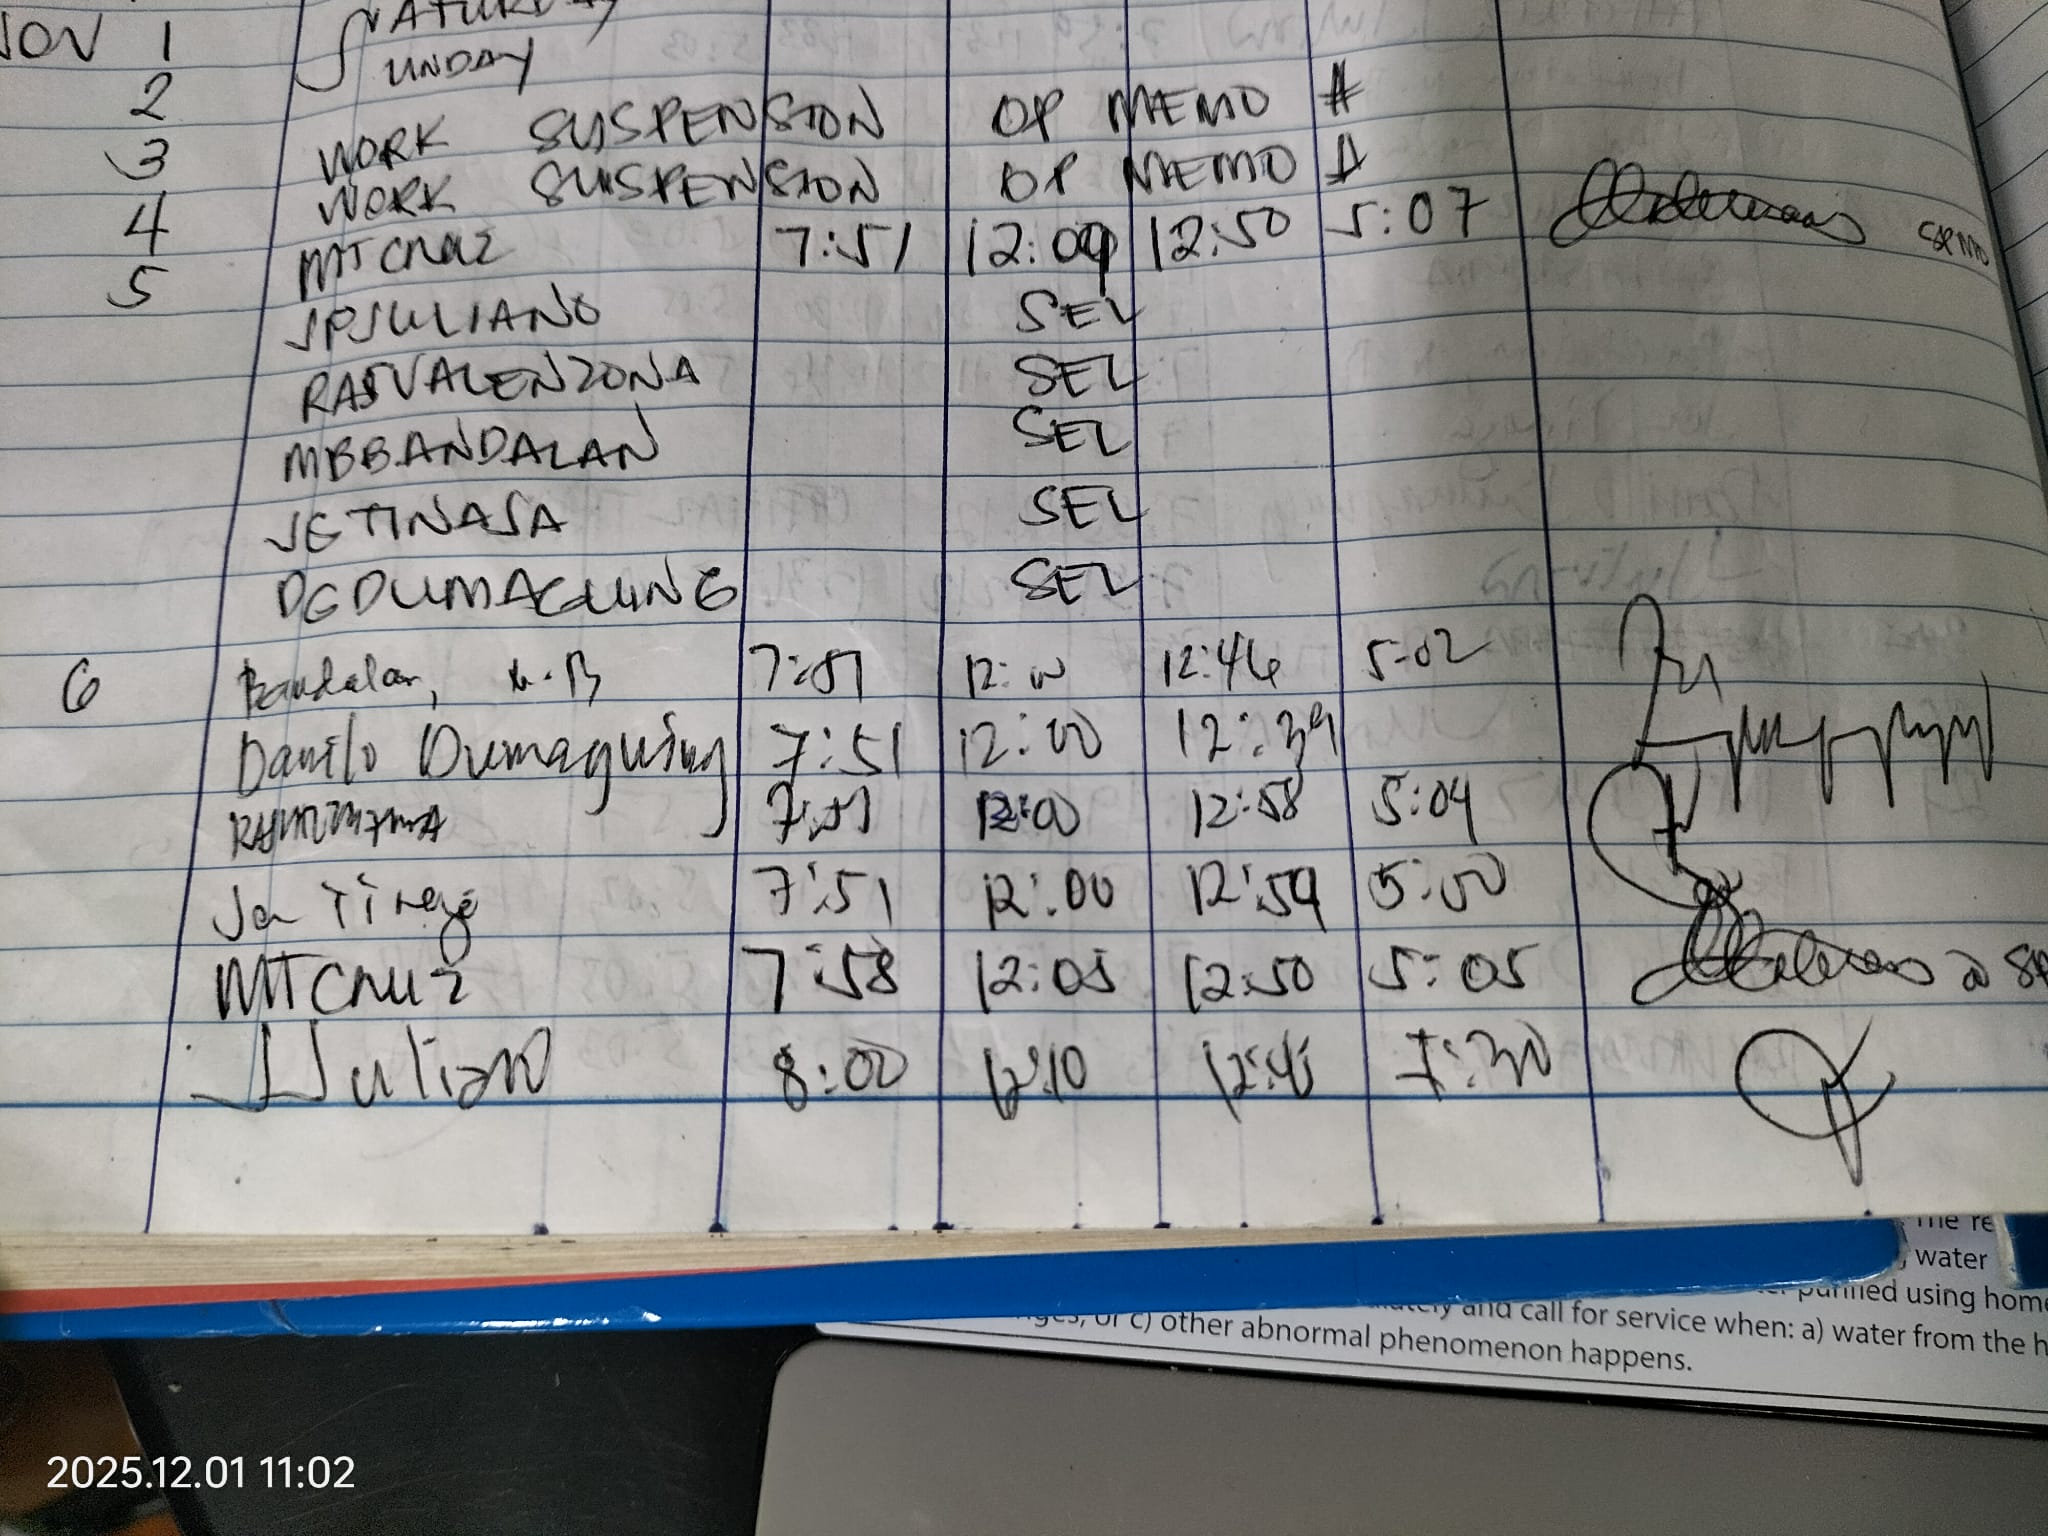 NOV 1 SATURDAY
2 SUNDAY
3 WORK SUSPENSION OP MEMO #
4 WORK SUSPENSION OP MEMO #
5 MTCRUZ 7:51 12:09 12:50 5:07
JPJULIANO SEL
RASVALENZONA SEL
MBBANDALAN SEL
JETINASA SEL
DGDUMAGUING SEL
6 Bandalan, M.B 7:51 12:00 12:46 5:02
Danilo Dumaguing 7:51 12:00 12:39
7:51 12:00 12:58 5:04
Jon 7:51 12:00 12:59 5:00
MTCRUZ 7:58 12:05 12:50 5:05
JJuliano 8:00 12:10 7:30
The re
, water
purified using home
and call for service when: a) water from the h
or c) other abnormal phenomenon happens.
2025.12.01 11:02